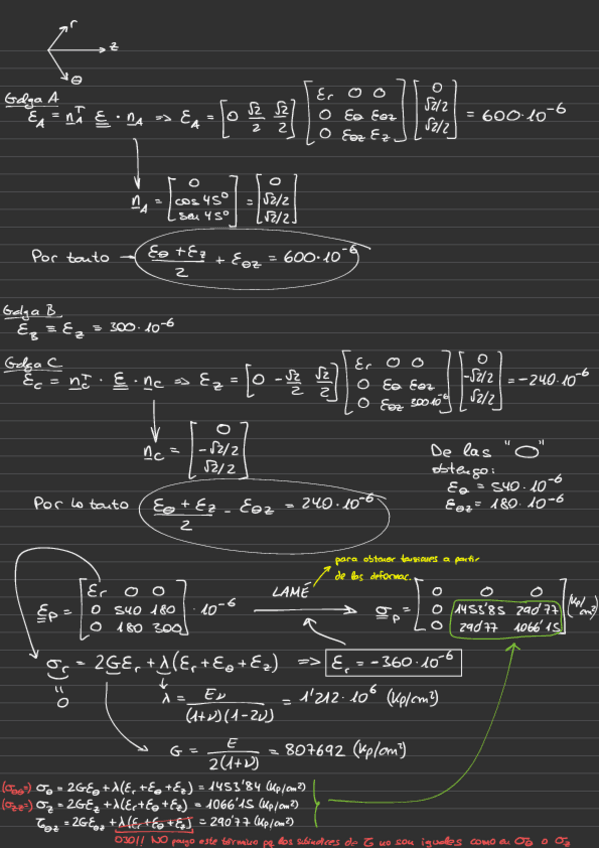 r
z
θ
Galga A
ε_A = n_A^T ε · n_A => ε_A = [0 √2/2 √2/2] [εr 0 0; 0 εθ εθz; 0 εθz εz] [0; √2/2; √2/2] = 600·10^-6
n_A = [0; cos 45º; sen 45º] = [0; √2/2; √2/2]
Por tanto → (εθ + εz)/2 + εθz = 600·10^-6
Galga B
ε_B ≡ ε_z = 300·10^-6
Galga C
ε_c = n_c^T · ε · n_c => ε_z = [0 -√2/2 √2/2] [εr 0 0; 0 εθ εθz; 0 εθz 300·10^-6] [0; -√2/2; √2/2] = -240·10^-6
n_c = [0; -√2/2; √2/2]
De las "O"
obtengo:
εθ = 540·10^-6
εθz = 180·10^-6
Por lo tanto (εθ + εz)/2 - εθz = 240·10^-6
para obtener tensiones a partir
de las deformac.
ε_P = [εr 0 0; 0 540 180; 0 180 300] · 10^-6 LAMÉ → σ_P = [0 0 0; 0 1453'85 290'77; 0 290'77 1066'15] (Kp/cm²)
σr = 2Gεr + λ(εr + εθ + εz) => εr = -360·10^-6
"
0
λ = Eν/((1+ν)(1-2ν)) = 1'212·10^6 (Kp/cm²)
G = E/(2(1+ν)) = 807692 (Kp/cm²)
(σθθ=) σθ = 2Gεθ + λ(εr + εθ + εz) = 1453'84 (Kp/cm²)
(σzz=) σz = 2Gεz + λ(εr + εθ + εz) = 1066'15 (Kp/cm²)
τθz = 2Gεθz + λ(εr + εθ + εz) = 290'77 (Kp/cm²)
OJO!! NO pongo este término pq los subíndices de τ no son iguales como en σθ o σz